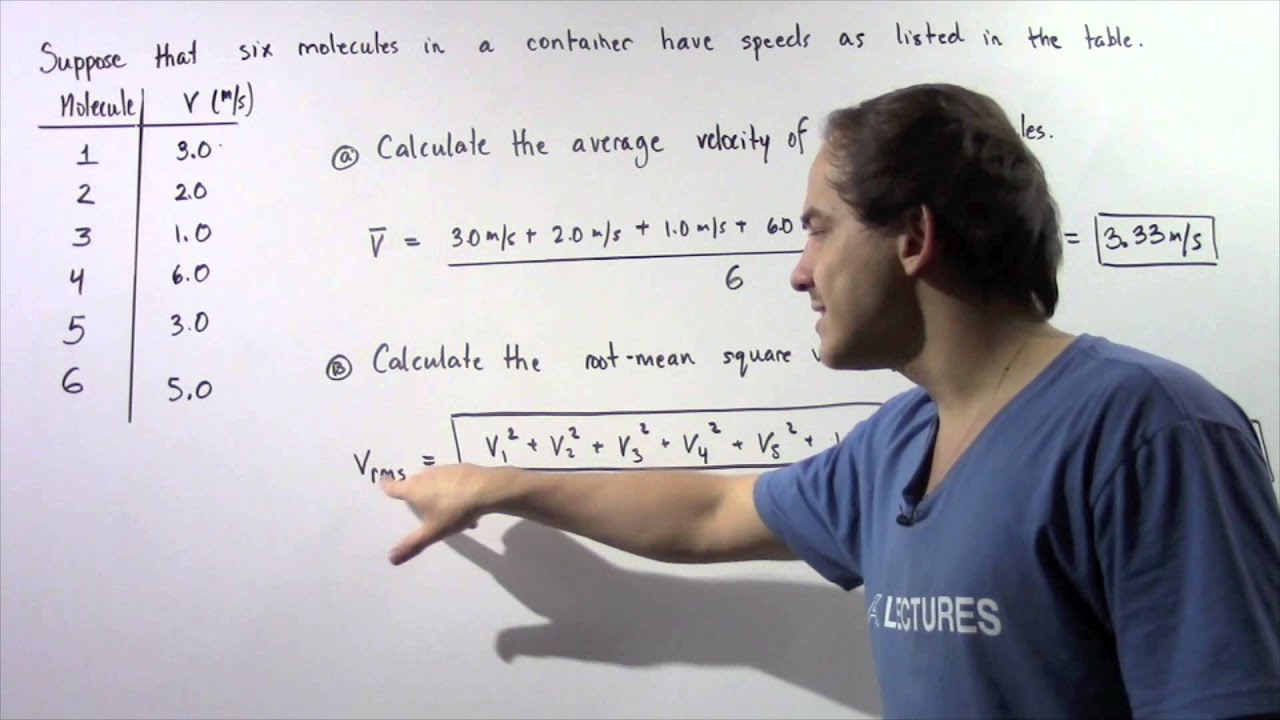 Suppose that six molecules in a container have speeds as listed in the table.
Molecule V (m/s)
1 3.0
2 2.0
3 1.0
4 6.0
5 3.0
6 5.0
Ⓐ Calculate the average velocity of
V̄ = 3.0 m/s + 2.0 m/s + 1.0 m/s + 6.0 = 3.33 m/s
6
Ⓑ Calculate the root-mean square
Vrms = V₁² + V₂² + V₃² + V₄² + V₅² +
LECTURES